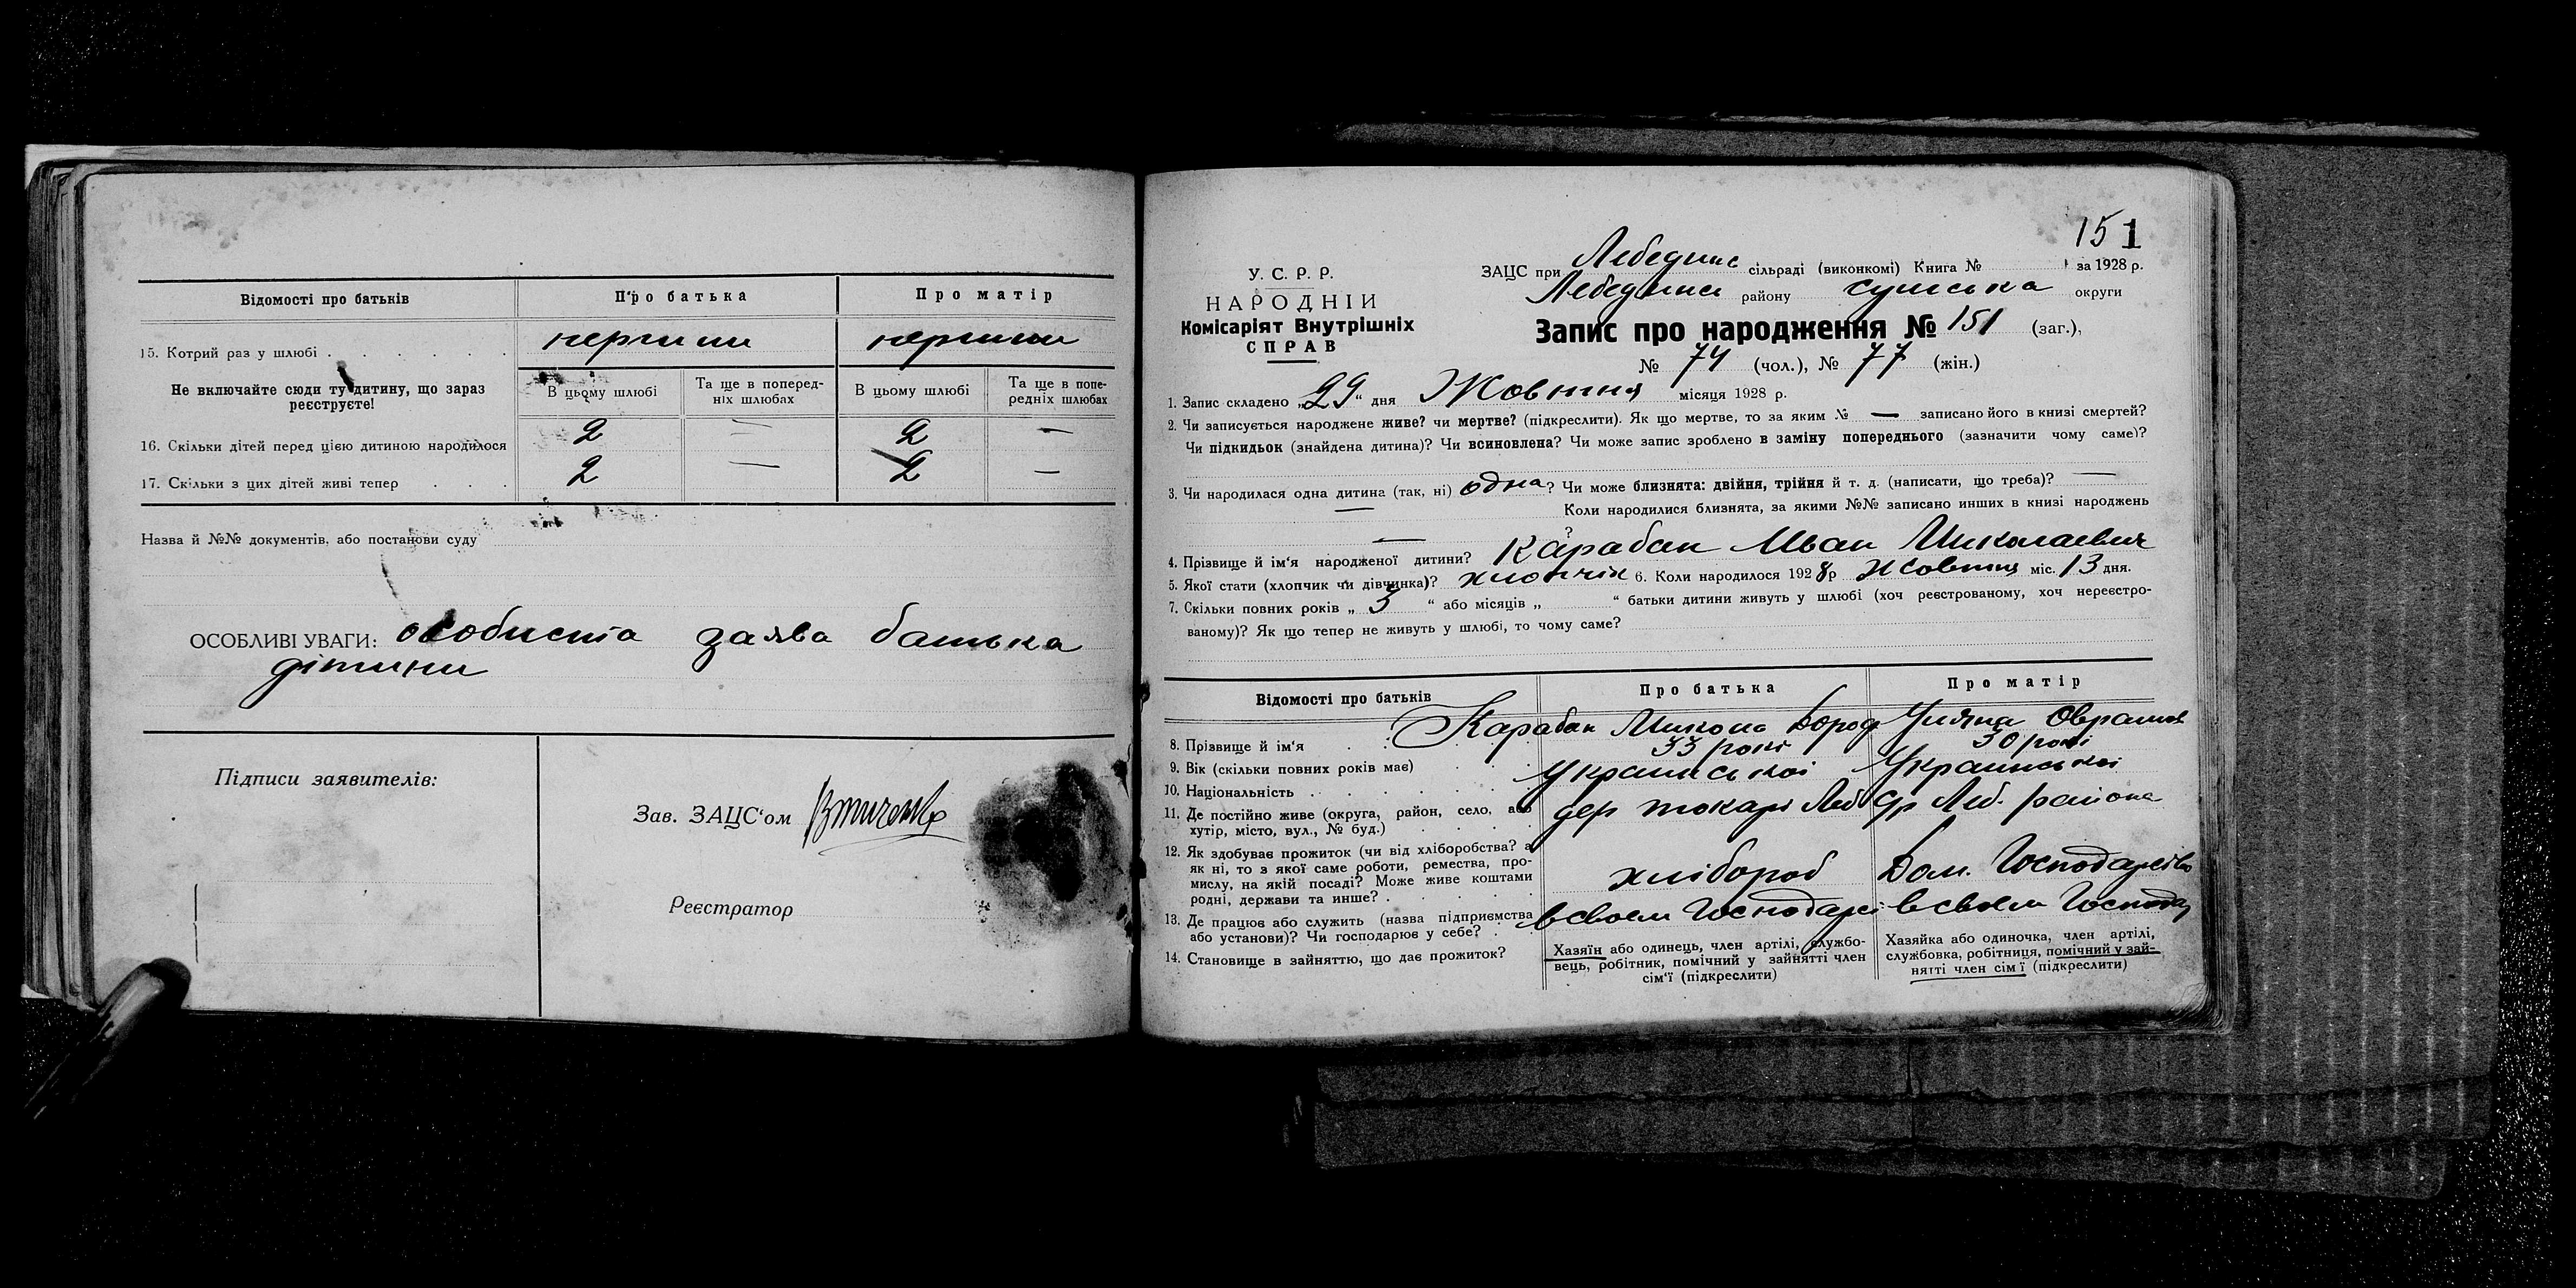 Відомості про батьків
Про батька
Про матір
15. Котрий раз у шлюбі
первши
первши
Не включайте сюди ту дитину, що зараз реєструєте!
В цьому шлюбі
Та ще в поперед-
ніх шлюбах
В цьому шлюбі
Та ще в попе-
редніх шлюбах
16. Скільки дітей перед цією дитиною народилося
2 — 2 —
17. Скільки з цих дітей живі тепер
2 — 2 —
Назва й №№ документів, або постанови суду
ОСОБЛИВІ УВАГИ: особиста заява батька
дітини
Підписи заявителів:
Зав. ЗАЦС'ом
Реєстратор
151
У. С. Р. Р.
НАРОДНІЙ
Комісаріят Внутрішніх
СПРАВ
ЗАЦС при Лебединс сільраді (виконкомі) Книга № за 1928 р.
Лебединс району сумська округи
Запис про народження № 151 (заг.),
№ 74 (чол.), № 77 (жін.)
1. Запис складено „29" дня Жовтня місяця 1928 р.
2. Чи записується народжене живе? чи мертве? (підкреслити). Як що мертве, то за яким № — записано його в книзі смертей?
Чи підкидьок (знайдена дитина)? Чи всиновлена? Чи може запис зроблено в заміну попереднього (зазначити чому саме)?
3. Чи народилася одна дитина (так, ні) одна? Чи може близнята: двійня, трійня й т. д. (написати, що треба)? —
— Коли народилися близнята, за якими №№ записано инших в книзі народжень
— ?
4. Прізвище й ім'я народженої дитини? Карабан Иван Миколаевич
5. Якої стати (хлопчик чи дівчинка)? хлопчік 6. Коли народилося 1928 р Жовтня міс. 13 дня.
7. Скільки повних років „ 3 " або місяців „ " батьки дитини живуть у шлюбі (хоч реєстрованому, хоч нереєстро-
ваному)? Як що тепер не живуть у шлюбі, то чому саме?
Відомості про батьків
Про батька
Про матір
8. Прізвище й ім'я
Карабан Микола
Уляна
9. Вік (скільки повних років має)
33 рокі
30 рокі
10. Національність
Украинськоі
Украинськоі
11. Де постійно живе (округа, район, село, або
хутір, місто, вул., № буд.)
дер токарі Леб
др Леб. района
12. Як здобуває прожиток (чи від хліборобства? а
як ні, то з якої саме роботи, ремества, про-
мислу, на якій посаді? Може живе коштами
родні, держави та инше?
хлібороб
Дом. Господарство
13. Де працює або служить (назва підприємства
або установи)? Чи господарює у себе?
в своем Господарсі
в своем Господар
14. Становище в зайняттю, що дає прожиток?
Хазяїн або одинець, член артілі, службо-
вець, робітник, помічний у зайнятті член
сім'ї (підкреслити)
Хазяйка або одиночка, член артілі,
службовка, робітниця, помічний у зай-
нятті член сім'ї (підкреслити)